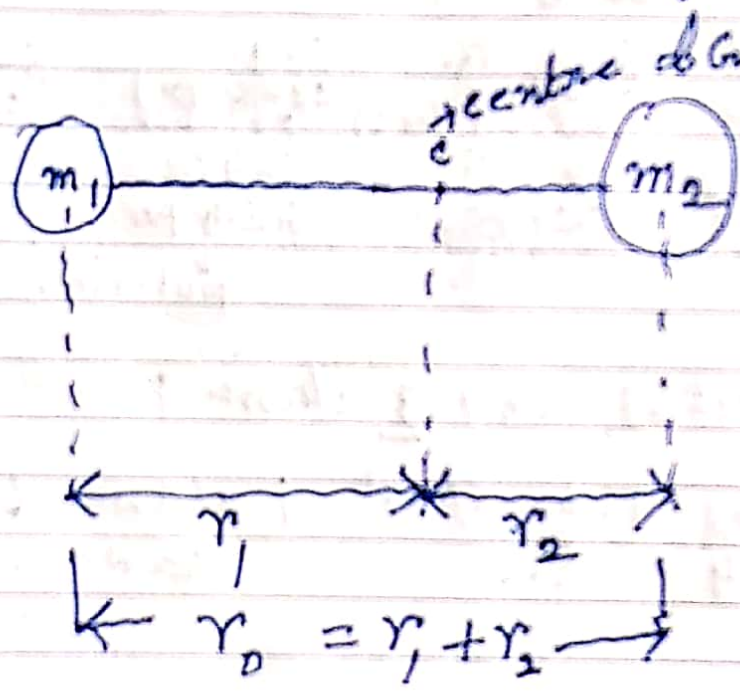 centre of G
c
m₁ m₂
r₁ r₂
r₀ = r₁ + r₂